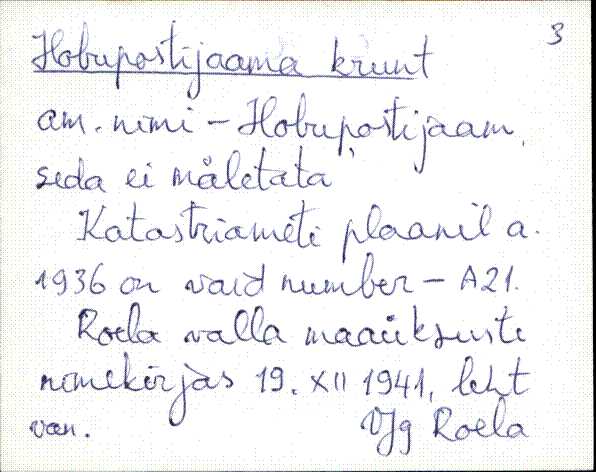 3
Hobupostijaama krunt
am. nimi – Hobupostijaam,
seda ei mäletata
Katastriameti plaanil a.
1936 on vaid number – A21.
Roela valla maaüksuste
nimekirjas 19. XII 1941, leht
van. VJg Roela